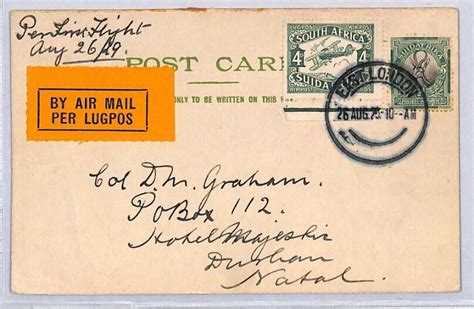 Per First Flight
Aug 26/29.
POST CARD
ONLY TO BE WRITTEN ON THIS
BY AIR MAIL
PER LUGPOS
SOUTH AFRICA
4 4
SUIDA
SUIDAFRIKA
EAST LONDON
26 AUG.29-10--AM
Col D. M. Graham.
PO Box 112.
Hotel Majestic
Durban
Natal.